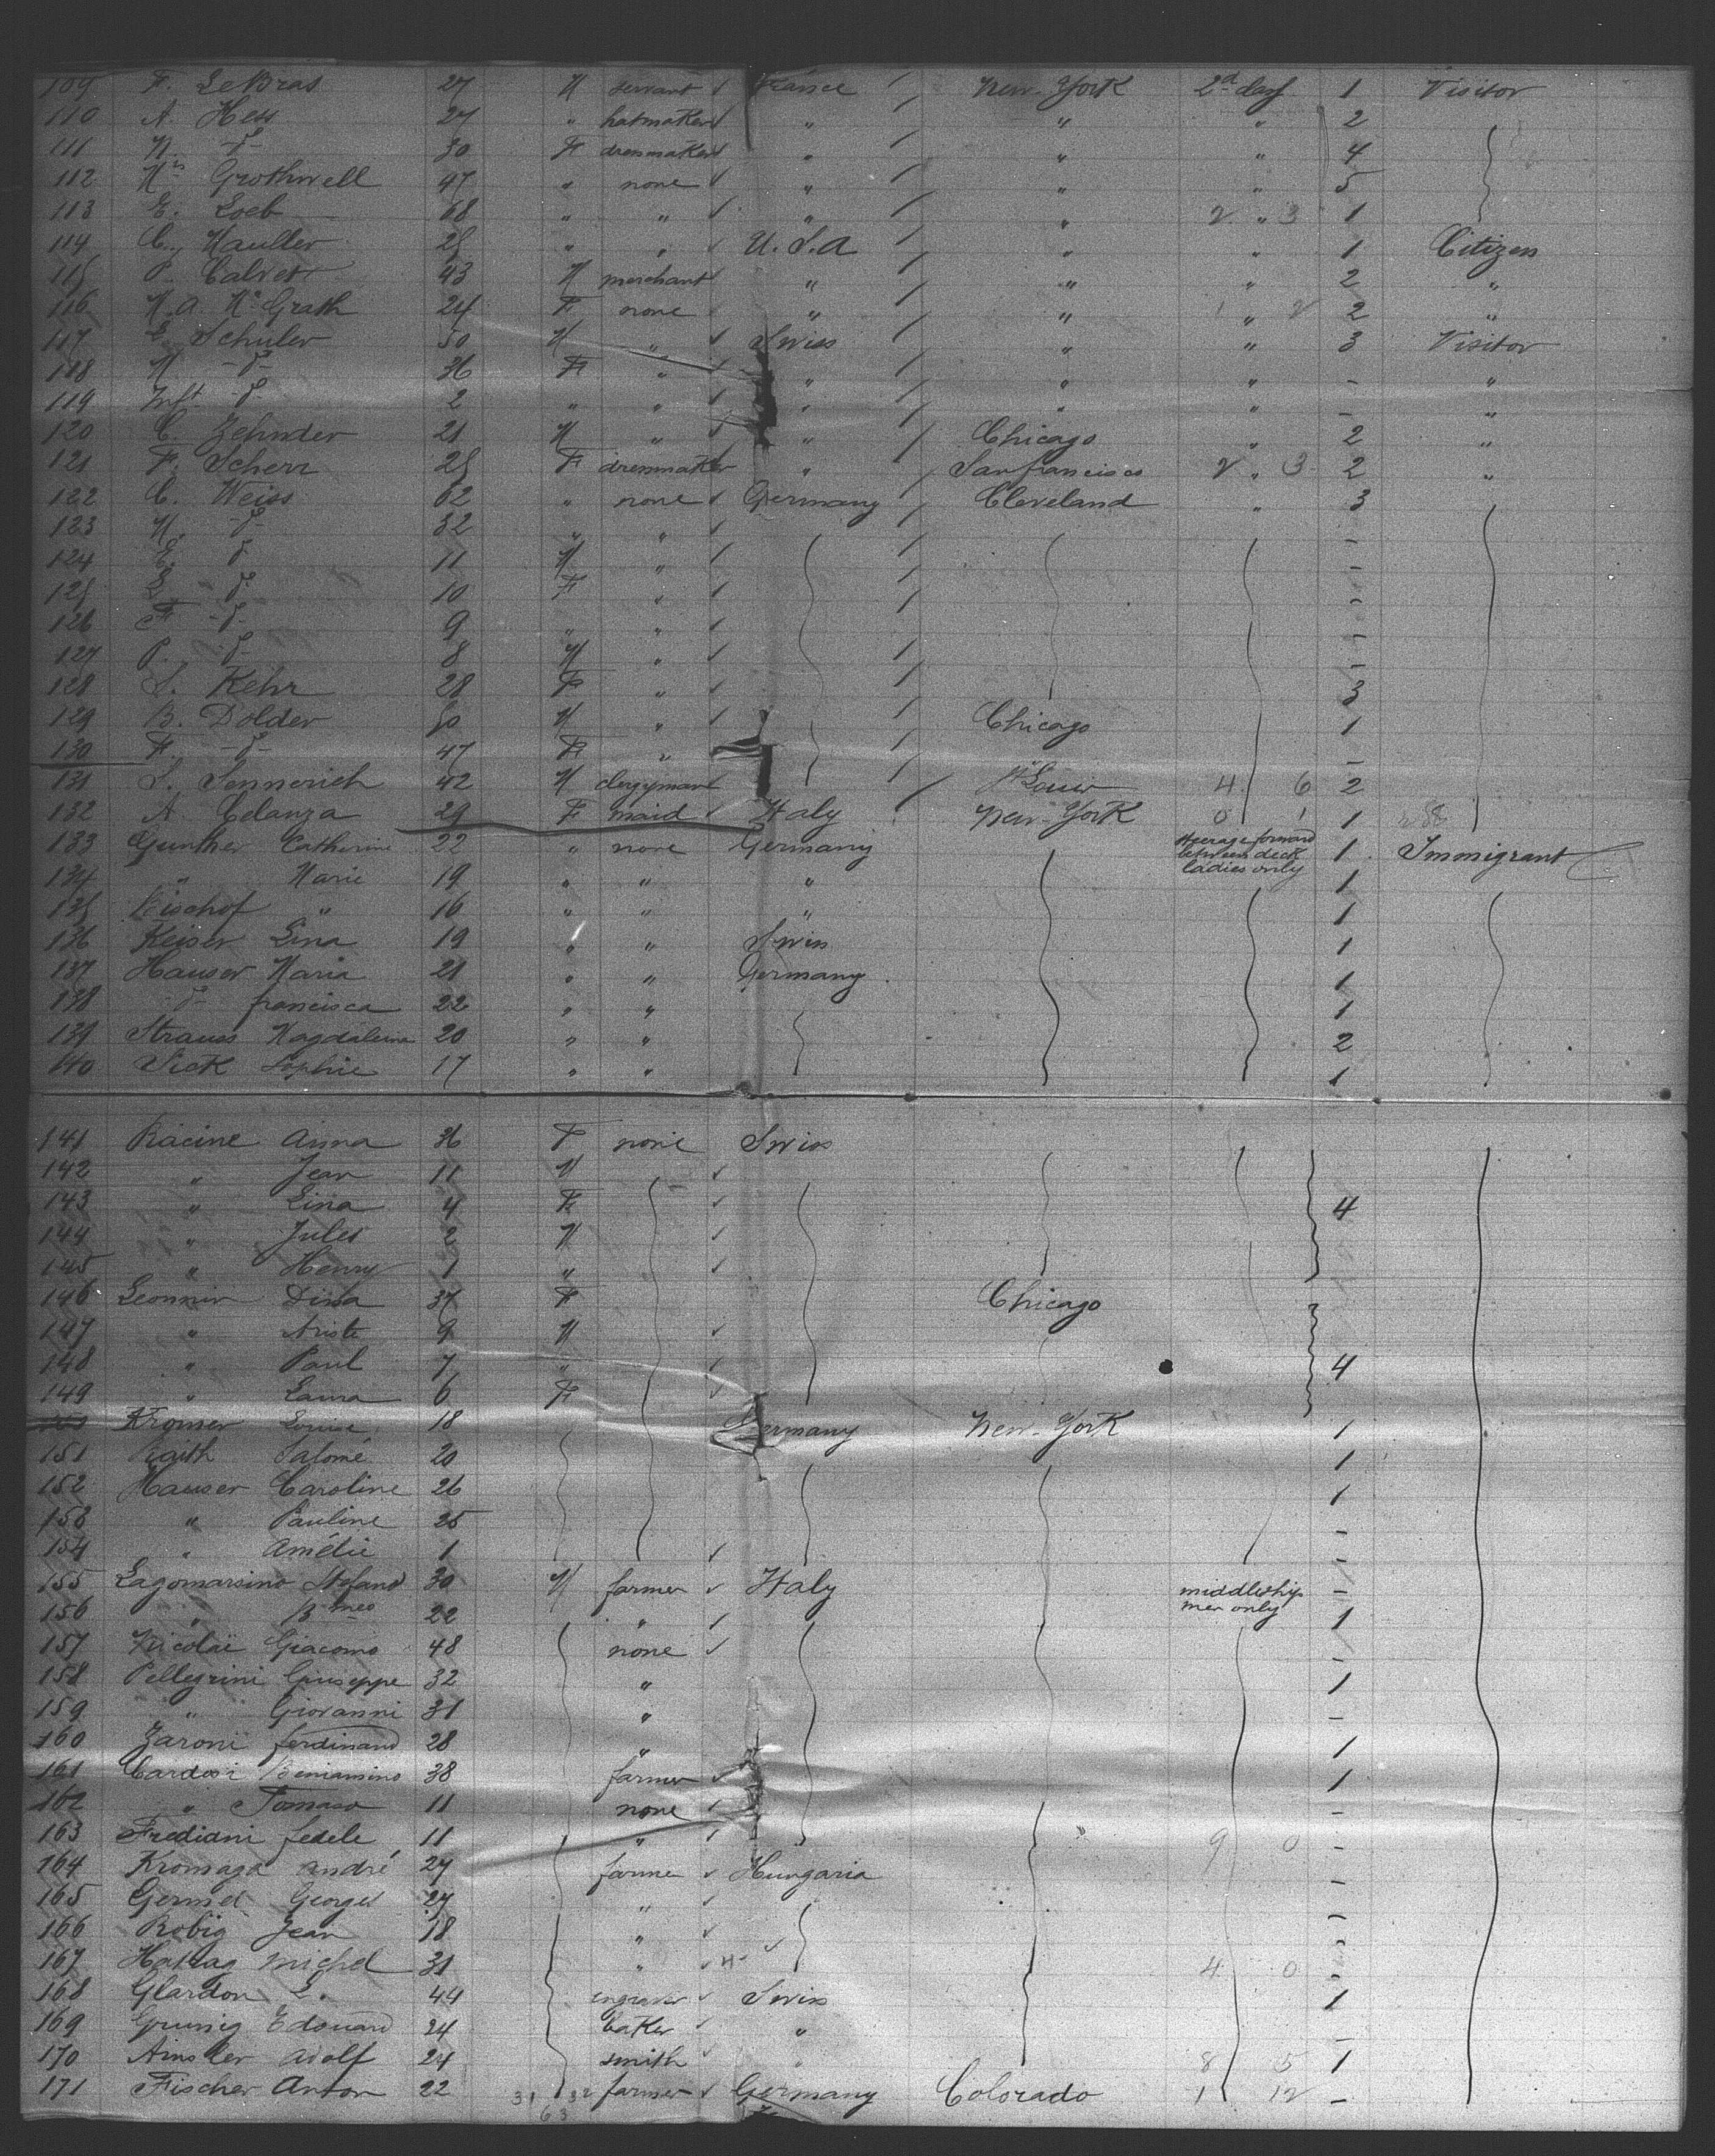 109 F. LeBras 27 M servant France New-York 2d day 1 Visitor
110 A. Hess 27 " hatmaker " " " 2
111 M. -d- 30 F dressmaker " " " 4
112 Ms Grothwell 47 " none " " " 5
113 E. Loeb 68 " " " " 2 " 3 1
114 C. Mauller 25 " " U.S.A " " 1 Citizen
115 P. Calvet 43 M merchant " " " 2 "
116 M.A. McGrath 24 F none " " 1 " 2 2 "
117 E. Schuler 50 M " Swiss " " 3 Visitor
118 M -d- 36 F " " " " - "
119 Inft -d- 2 " " " " " - "
120 C. Zehnder 21 M " " Chicago " 2 "
121 F. Scherr 25 F dressmaker " San francisco 2 " 3 2 "
122 C. Weiss 62 " none Germany Cleveland " 3
123 M. -d- 32 " " -
124 E. d- 11 M " -
125 L. -d- 10 F " -
126 F -d- 9 " " -
127 P. -d- 8 M " -
128 S. Kehr 28 F " 3
129 B. Dolder 50 M " Chicago 1
130 F. -d- 47 F " -
131 S. Sennerich 42 M clergyman St Louis 4 6 2
132 A. Celanza 29 F maid Italy New-York 0 1 1
133 Gunther Catherine 22 " none Germany Steerage forward between deck ladies only 1 Immigrant
134 " Marie 19 " " " 1
135 Bischof " 16 " " " 1
136 Keiser Lina 19 " " Swiss 1
137 Hauser Maria 21 " " Germany 1
138 -d- francisca 22 " " 1
139 Strauss Magdaleina 20 " " 2
140 Sick Sophie 17 " " 1
141 Racine Anna 36 F none Swiss
142 " Jean 11 M
143 " Lina 4 F 4
144 " Jules 2 M
145 " Henry 1 "
146 Leonnin Dina 37 F Chicago
147 " Ariste 9 M
148 " Paul 7 " 4
149 " Laura 6 F
Kromer Louise 18 Germany New-York 1
151 Raith Salomé 20 1
152 Hauser Caroline 26 1
153 " Pauline 25 -
154 " Amélie 1 -
155 Lagomarsino Stefano 30 M farmer Italy middleship men only -
156 " Bmeo 22 " 1
157 Nicolaï Giacomo 48 none -
158 Pellegrini Giuseppe 32 " 1
159 " Giovanni 31 " -
160 Zaroni ferdinand 28 " 1
161 Cardosi Beniamino 38 farmer 1
162 " Tomaso 11 none -
163 Frediani fedele 11 " " 9 0 -
164 Kromaga andré 27 farmer Hungaria -
165 Germet Georges 27 " -
166 Robig Jean 18 " -
167 Hattag michel 31 " 4 0 -
168 Glardon L. 44 engraver Swiss 1
169 Grunig Edouard 24 baker " -
170 Amsler Adolf 24 smith " 8 5 1
171 Fischer Anton 22 31 32 farmer Germany Colorado 1 12 -
63